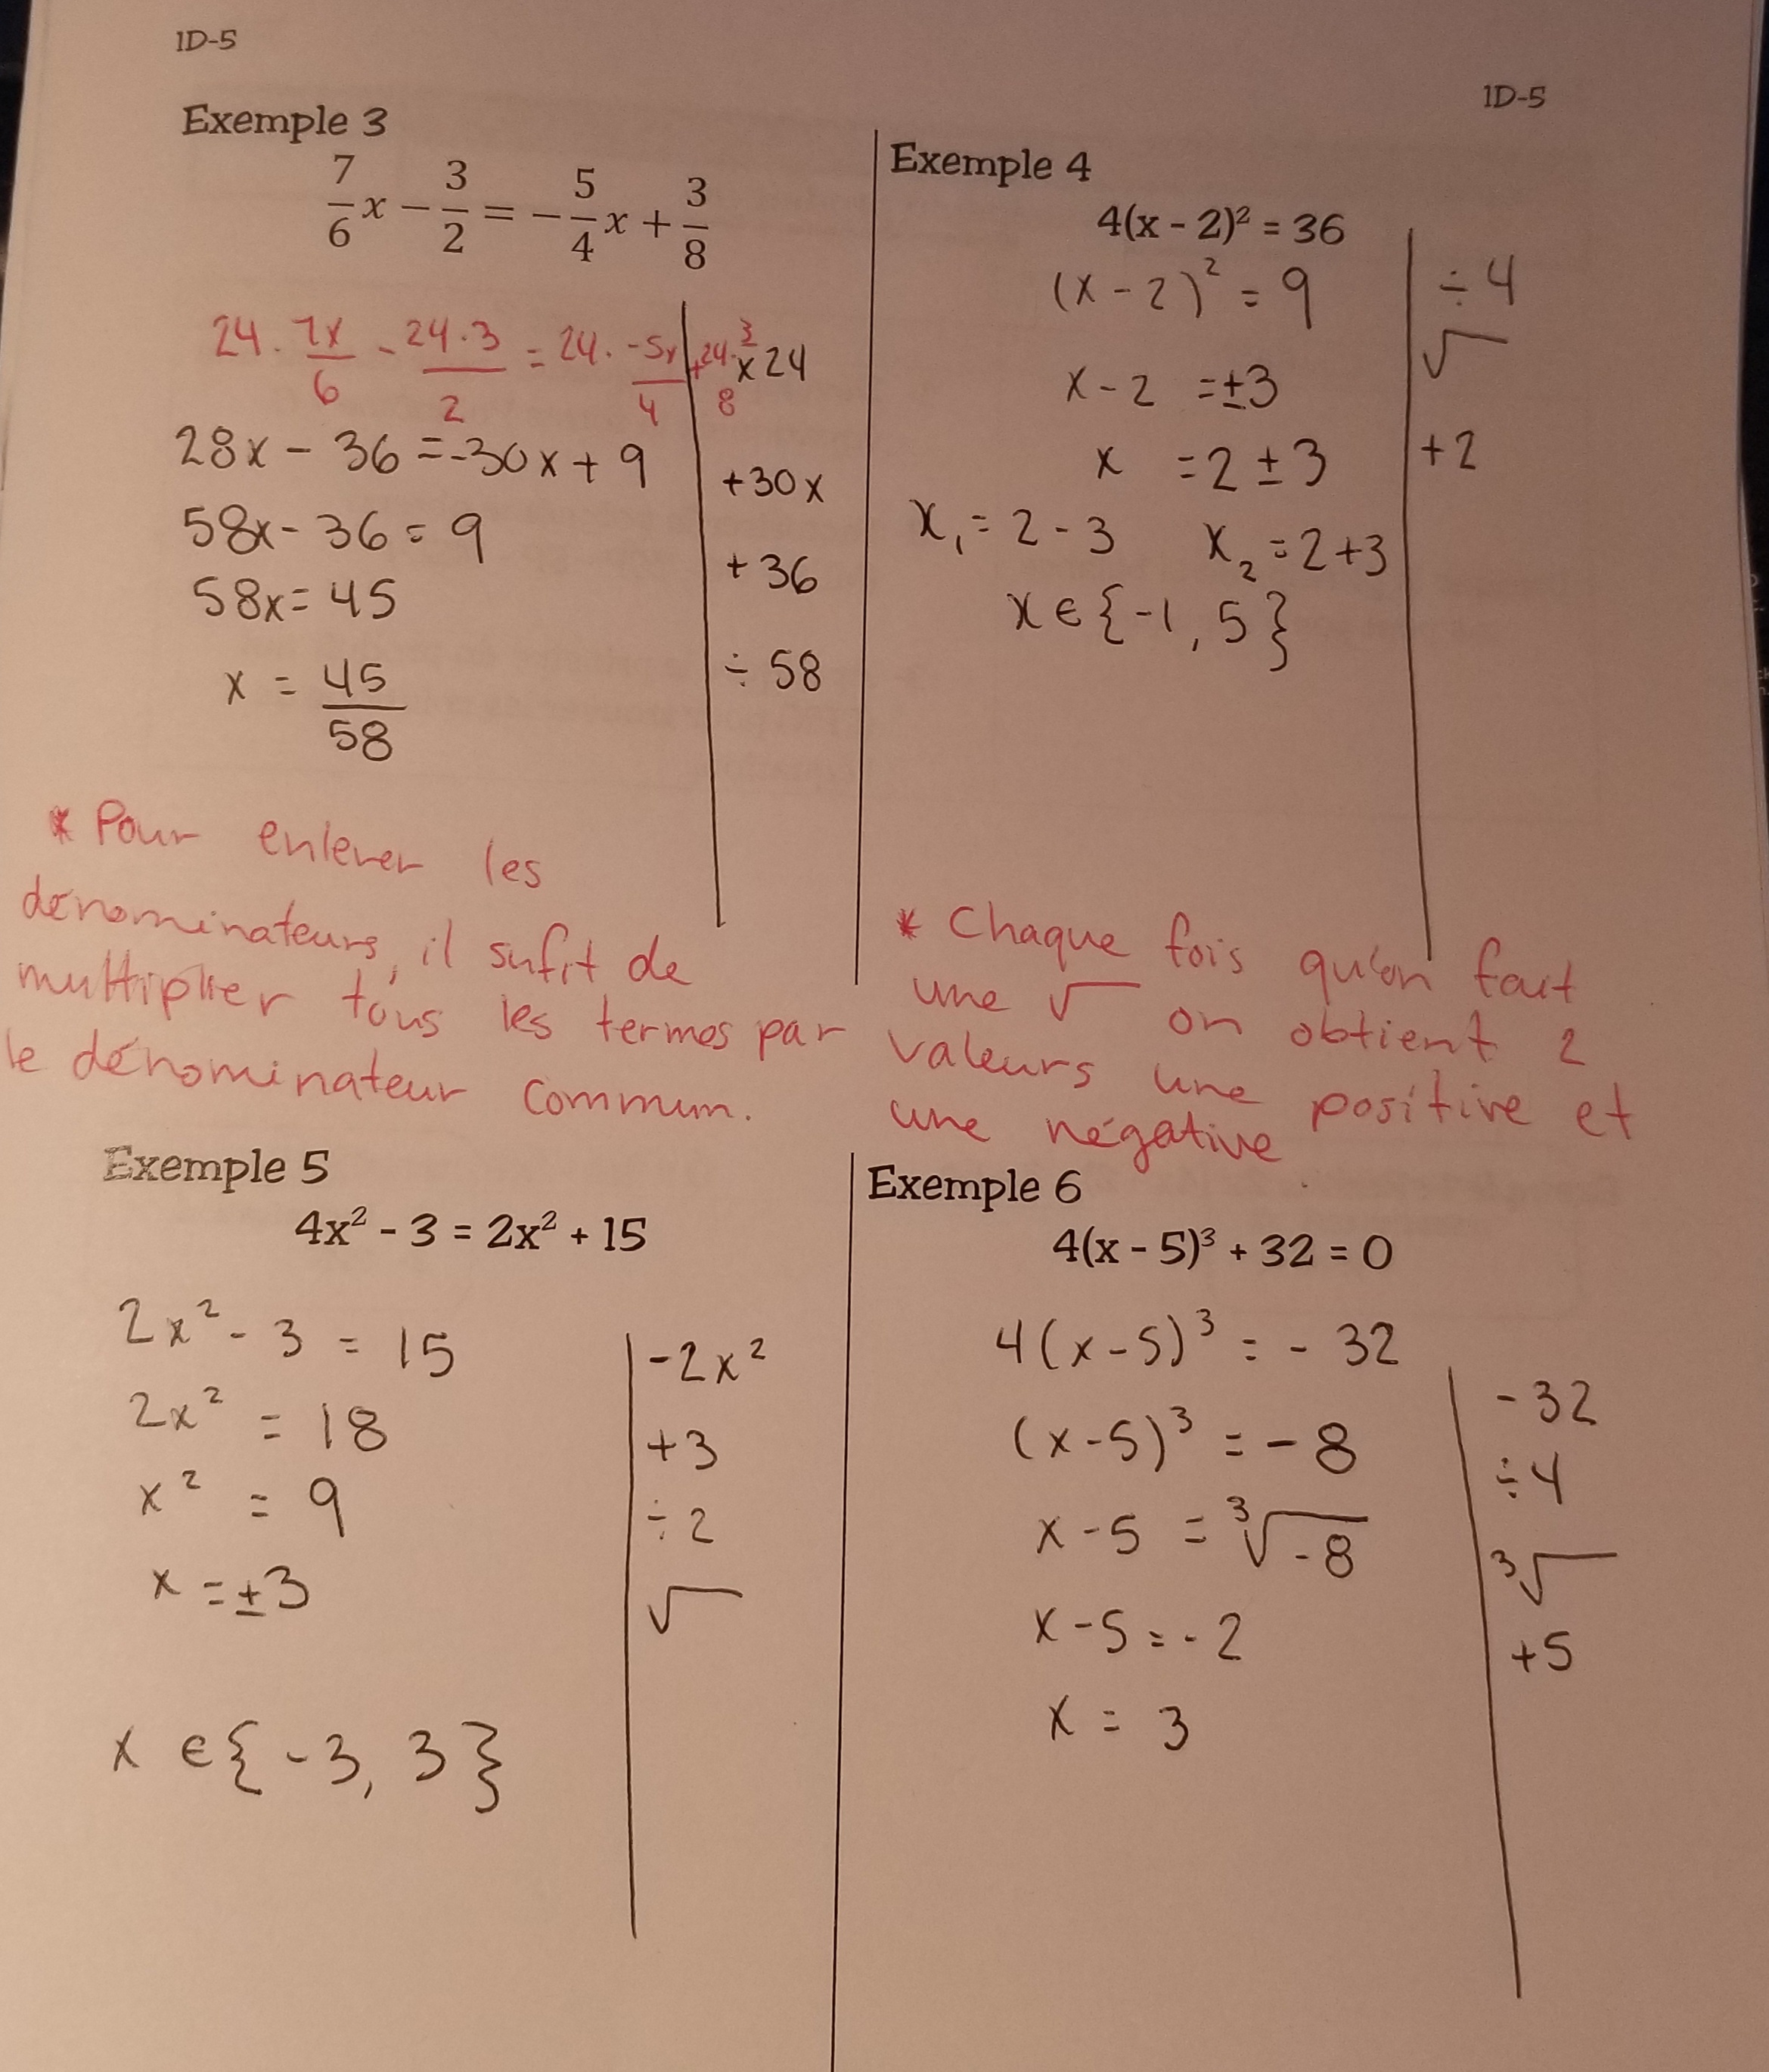 1D-5
1D-5
Exemple 3
7/6 x − 3/2 = − 5/4 x + 3/8
24 · 7x/6 - 24·3/2 = 24 · -5x/4 + 24·3/8
x24
28x - 36 = -30x + 9
+30x
58x - 36 = 9
+36
58x = 45
÷ 58
x = 45/58
* Pour enlever les
dénominateurs, il sufit de
multiplier tous les termes par
le dénominateur commun.
Exemple 4
4(x - 2)² = 36
(x - 2)² = 9
÷ 4
√
x - 2 = ±3
x = 2 ± 3
+2
x₁ = 2 - 3 x₂ = 2 + 3
x ∈ {-1, 5}
* Chaque fois qu'on fait
une √ on obtient 2
valeurs une positive et
une négative
Exemple 5
4x² - 3 = 2x² + 15
2x² - 3 = 15
-2x²
2x² = 18
+3
x² = 9
÷2
x = ±3
√
x ∈ {-3, 3}
Exemple 6
4(x - 5)³ + 32 = 0
4(x - 5)³ = - 32
-32
(x - 5)³ = - 8
÷4
x - 5 = ³√-8
³√
x - 5 = - 2
+5
x = 3